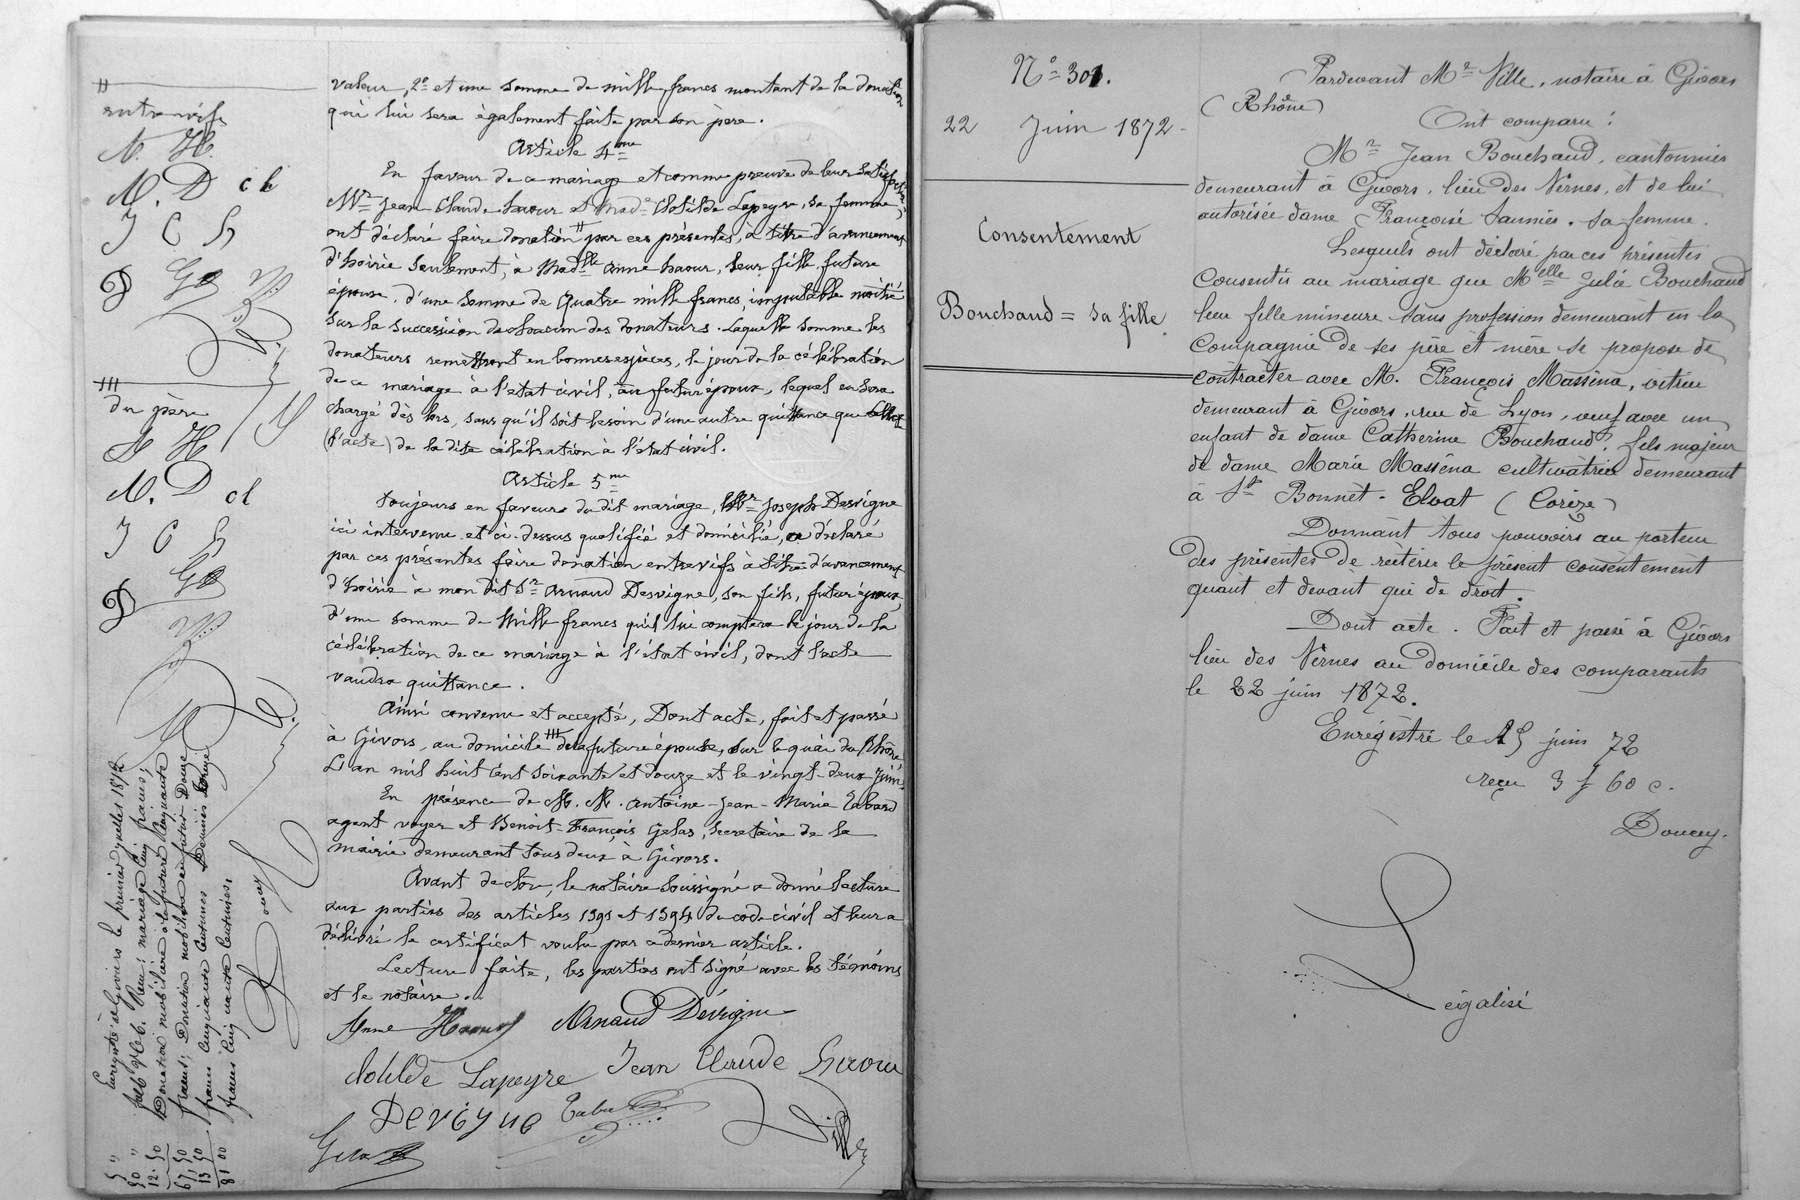 entre vifs
N. H.
M. D cl
J C h
D
du père
A H
M. D cl
J C h
D
valeur, 2º et une somme de mille francs montant de la donation
qui lui sera également faite par son père.
Article 4me
En faveur de ce mariage et comme preuve de leur satisfaction
Mr Jean Claude haour et Made Clotilde Lapeyre, sa femme,
ont déclaré faire donation par ces présentes, à titre d'avancement
d'hoirie seulement, à Madlle Anne haour, leur fille, future
épouse, d'une somme de Quatre mille francs, imputable moitié
sur la succession de chacun des donateurs. Laquelle somme les
donateurs remettront en bonnes espèces, le jour de la célébration
de ce mariage à l'état civil, au futur époux, lequel en sera
chargé dès lors, sans qu'il soit besoin d'une autre quittance que
(l'acte) de la dite célébration à l'état civil.
Article 5me
Toujours en faveur du dit mariage, Mr Joseph Desvigne
ici intervenu et ci-dessus qualifié et domicilié, a déclaré
par ces présentes faire donation entrevifs à titre d'avancement
d'hoirie à mon dit Sr Arnaud Desvigne, son fils, futur époux,
d'une somme de Mille francs qu'il lui comptera le jour de la
célébration de ce mariage à l'état civil, dont l'acte
vaudra quittance.
Ainsi convenu et accepté, Dont acte, fait et passé
à Givors, au domicile de la future épouse, sur le quai du Rhône
L'an mil huit cent soixante et douze et le vingt-deux juin.
En présence de M. M. Antoine-Jean-Marie Tabard
agent voyer et Benoit-François Gelas, secrétaire de la
mairie demeurant tous deux à Givors.
Avant de clore, le notaire soussigné a donné lecture
aux parties des articles 1391 et 1394 du code civil et leur a
délivré le certificat voulu par ce dernier article.
Lecture faite, les parties ont signé avec les témoins
et le notaire.
Anne Haour Arnaud Dévigne
Clotilde Lapeyre Jean Claude haour
Devigne Tabard
Gelas Ville
Enregistré à Givors le premier juillet 1872
francs, Donation mobilière au futur Douze
francs cinquante centimes
francs cinquante centimes.
Doucey
5 "
50 "
12.50
67,50
13 50
81 00
Nº 301.
22 Juin 1872-
Consentement
Bouchaud = sa fille
Pardevant Me Ville, notaire à Givors
(Rhône)
Ont comparu:
Mr Jean Bouchaud, cantonnier
demeurant à Givors, lieu des Vernes, et de lui
autorisée dame Françoise Saunier, sa femme.
Lesquels ont déclaré par ces présentes
Consentir au mariage que Melle Julie Bouchaud
leur fille mineure sans profession demeurant en la
Compagnie de ses père et mère se propose de
contracter avec M. François Masséna, vitrier
demeurant à Givors, rue de Lyon, veuf avec un
enfant de dame Catherine Bouchaud, fils majeur
de dame Marie Masséna cultivatrice demeurant
à St Bonnet-Elvat (Corèze)
Donnant tous pouvoirs au porteur
des présentes de réitérer le présent consentement
quant et devant qui de droit.
Dont acte. Fait et passé à Givors
lieu des Vernes au domicile des comparants
le 22 juin 1872.
Enregistré le 25 juin 72
reçu 3 f 60 c.
Doucey.
Légalisé